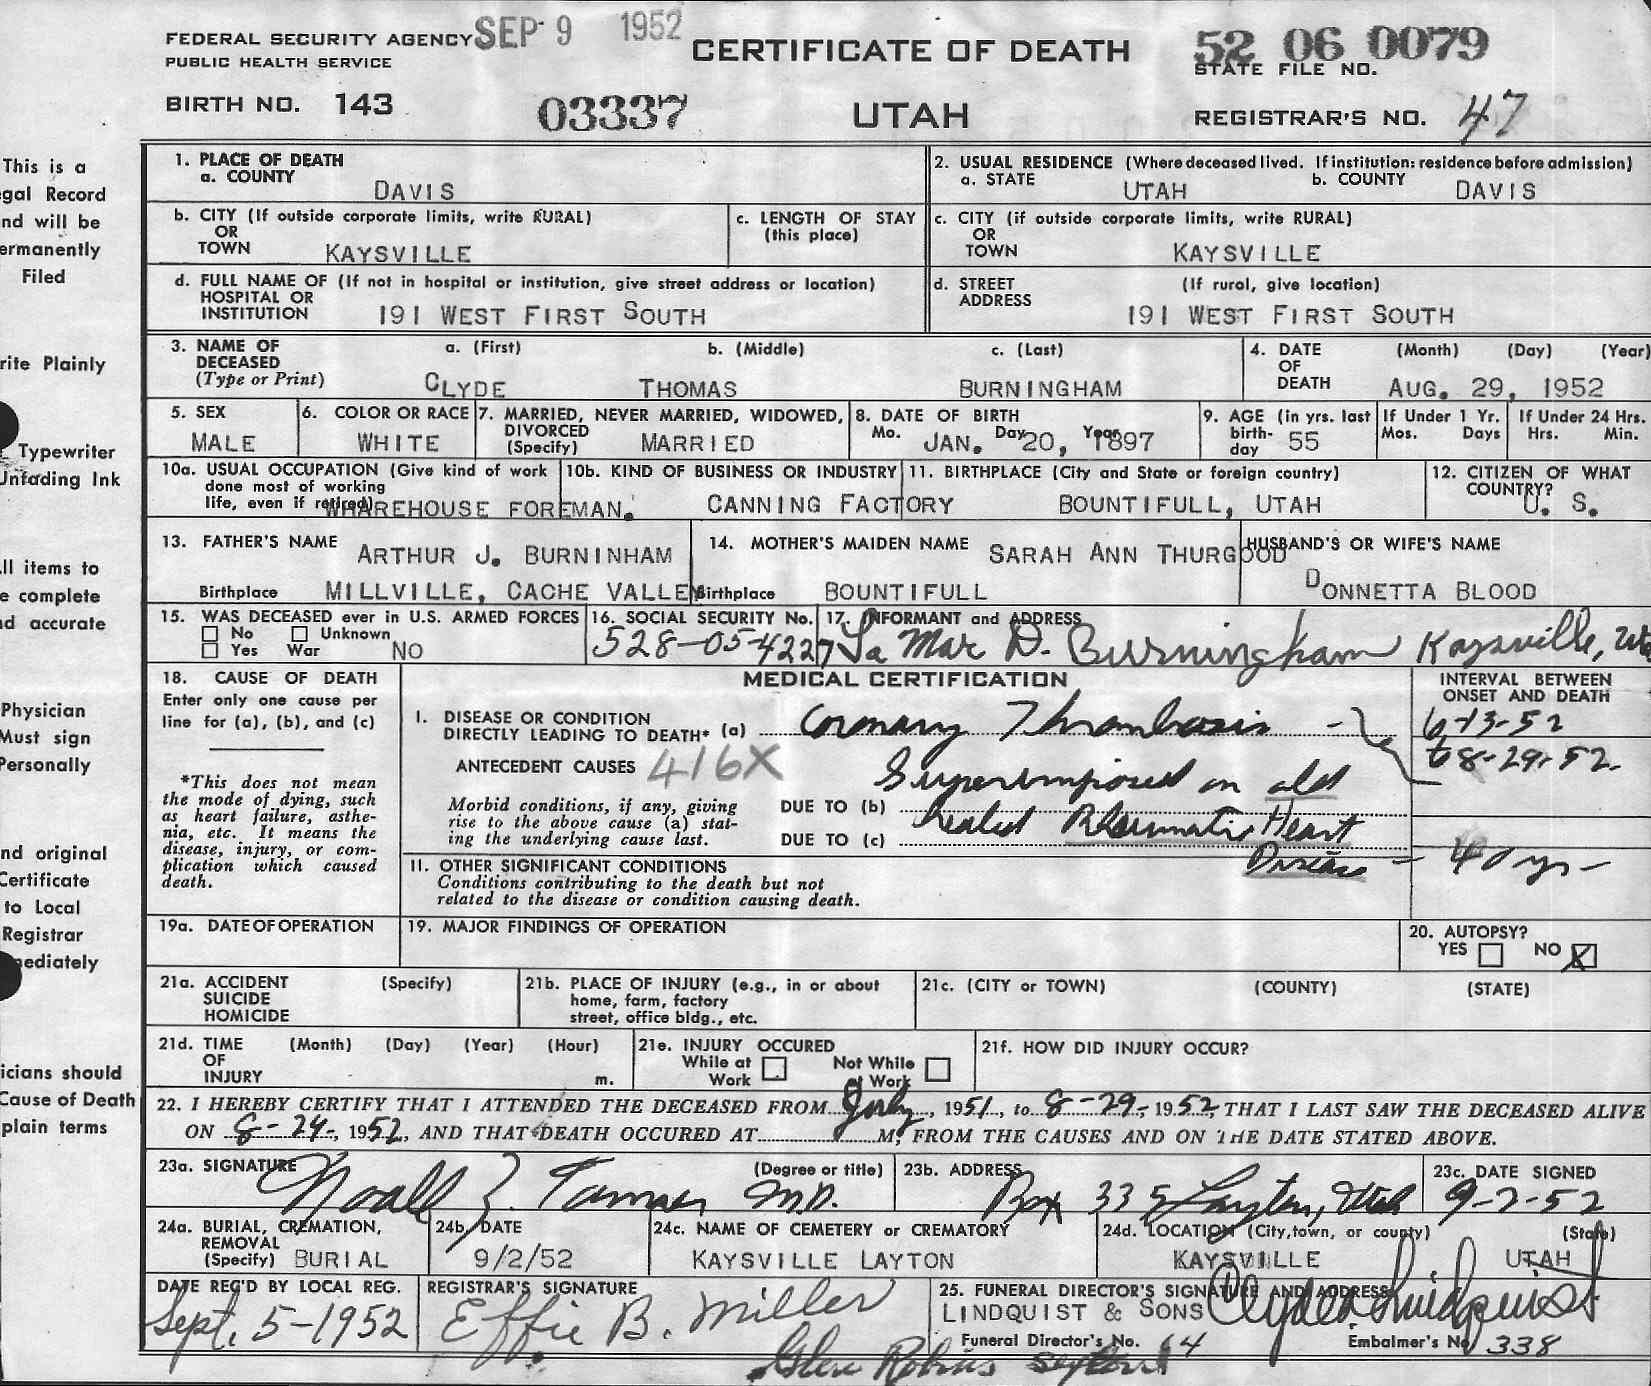 FEDERAL SECURITY AGENCY SEP 9 1952 CERTIFICATE OF DEATH 52 06 0079
PUBLIC HEALTH SERVICE STATE FILE NO.
BIRTH NO. 143 03337 UTAH REGISTRAR'S NO. 47
This is a
gal Record
nd will be
ermanently
Filed
rite Plainly
Typewriter
Unfading Ink
ll items to
e complete
nd accurate
Physician
Must sign
Personally
nd original
Certificate
to Local
Registrar
mediately
icians should
Cause of Death
plain terms
1. PLACE OF DEATH
a. COUNTY
DAVIS
2. USUAL RESIDENCE (Where deceased lived. If institution: residence before admission)
a. STATE UTAH b. COUNTY DAVIS
b. CITY (If outside corporate limits, write RURAL)
OR
TOWN KAYSVILLE
c. LENGTH OF STAY
(this place)
c. CITY (if outside corporate limits, write RURAL)
OR
TOWN KAYSVILLE
d. FULL NAME OF (If not in hospital or institution, give street address or location)
HOSPITAL OR
INSTITUTION 191 WEST FIRST SOUTH
d. STREET (If rural, give location)
ADDRESS
191 WEST FIRST SOUTH
3. NAME OF a. (First) b. (Middle) c. (Last)
DECEASED
(Type or Print) CLYDE THOMAS BURNINGHAM
4. DATE (Month) (Day) (Year)
OF
DEATH AUG. 29, 1952
5. SEX
MALE
6. COLOR OR RACE
WHITE
7. MARRIED, NEVER MARRIED, WIDOWED,
DIVORCED
(Specify) MARRIED
8. DATE OF BIRTH
Mo. Day Year
JAN. 20, 1897
9. AGE (in yrs. last
birth-
day 55
If Under 1 Yr.
Mos. Days
If Under 24 Hrs.
Hrs. Min.
10a. USUAL OCCUPATION (Give kind of work
done most of working
life, even if retired)
WHAREHOUSE FOREMAN.
10b. KIND OF BUSINESS OR INDUSTRY
CANNING FACTORY
11. BIRTHPLACE (City and State or foreign country)
BOUNTIFULL, UTAH
12. CITIZEN OF WHAT
COUNTRY?
U. S.
13. FATHER'S NAME ARTHUR J. BURNINHAM
Birthplace MILLVILLE, CACHE VALLEY
14. MOTHER'S MAIDEN NAME SARAH ANN THURGOOD
Birthplace BOUNTIFULL
HUSBAND'S OR WIFE'S NAME
DONNETTA BLOOD
15. WAS DECEASED ever in U.S. ARMED FORCES
No Unknown
Yes War NO
16. SOCIAL SECURITY No.
528-05-4227
17. INFORMANT and ADDRESS
La Mar D. Burningham Kaysville, Uta
18. CAUSE OF DEATH
Enter only one cause per
line for (a), (b), and (c)
*This does not mean
the mode of dying, such
as heart failure, asthe-
nia, etc. It means the
disease, injury, or com-
plication which caused
death.
MEDICAL CERTIFICATION
I. DISEASE OR CONDITION
DIRECTLY LEADING TO DEATH* (a) Coronary Thrombosis
ANTECEDENT CAUSES 416X
Superimposed on old
Morbid conditions, if any, giving
rise to the above cause (a) stat-
ing the underlying cause last.
DUE TO (b)
healed Rheumatic Heart
DUE TO (c)
Disease -
II. OTHER SIGNIFICANT CONDITIONS
Conditions contributing to the death but not
related to the disease or condition causing death.
INTERVAL BETWEEN
ONSET AND DEATH
6-13-52
to 8-29-52.
40 yrs -
19a. DATE OF OPERATION
19. MAJOR FINDINGS OF OPERATION
20. AUTOPSY?
YES NO X
21a. ACCIDENT (Specify)
SUICIDE
HOMICIDE
21b. PLACE OF INJURY (e.g., in or about
home, farm, factory
street, office bldg., etc.
21c. (CITY or TOWN) (COUNTY) (STATE)
21d. TIME (Month) (Day) (Year) (Hour)
OF
INJURY m.
21e. INJURY OCCURED
While at Not While
Work at Work
21f. HOW DID INJURY OCCUR?
22. I HEREBY CERTIFY THAT I ATTENDED THE DECEASED FROM July, 1951, to 8-29-, 1952, THAT I LAST SAW THE DECEASED ALIVE
ON 8-24-, 1952, AND THAT DEATH OCCURED AT M, FROM THE CAUSES AND ON THE DATE STATED ABOVE.
23a. SIGNATURE (Degree or title)
Noall Z. Tanner M.D.
23b. ADDRESS
Box 335 Layton, Utah
23c. DATE SIGNED
9-2-52
24a. BURIAL, CREMATION,
REMOVAL
(Specify) BURIAL
24b. DATE
9/2/52
24c. NAME OF CEMETERY or CREMATORY
KAYSVILLE LAYTON
24d. LOCATION (City, town, or county) (State)
KAYSVILLE UTAH
DATE REC'D BY LOCAL REG.
Sept. 5-1952
REGISTRAR'S SIGNATURE
Effie B. Miller
25. FUNERAL DIRECTOR'S SIGNATURE AND ADDRESS
LINDQUIST & SONS Clyde Lindquist
Funeral Director's No. 64 Embalmer's No 338
Glen Robins sexton